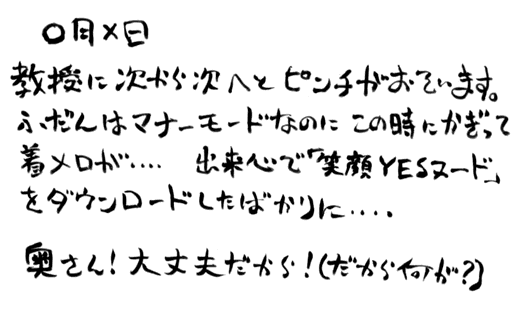 〇月×日
教授に次から次へとピンチがおそいます。
ふだんはマナーモードなのにこの時にかぎって
着メロが‥‥ 出来心で「笑顔YESヌード」
をダウンロードしたばかりに‥‥
奥さん!大丈夫だから!(だから何が?)